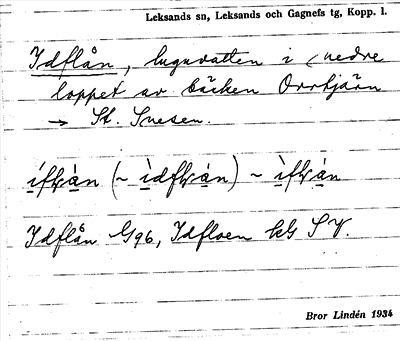 Leksands sn, Leksands och Gagnefs tg, Kopp. l.
Idflån, lugnvatten i nedre
loppet av bäcken Orrtjärn
→ St. Snesen.
Idflån G96, Idfloen kG SV.
Bror Lindén 1934